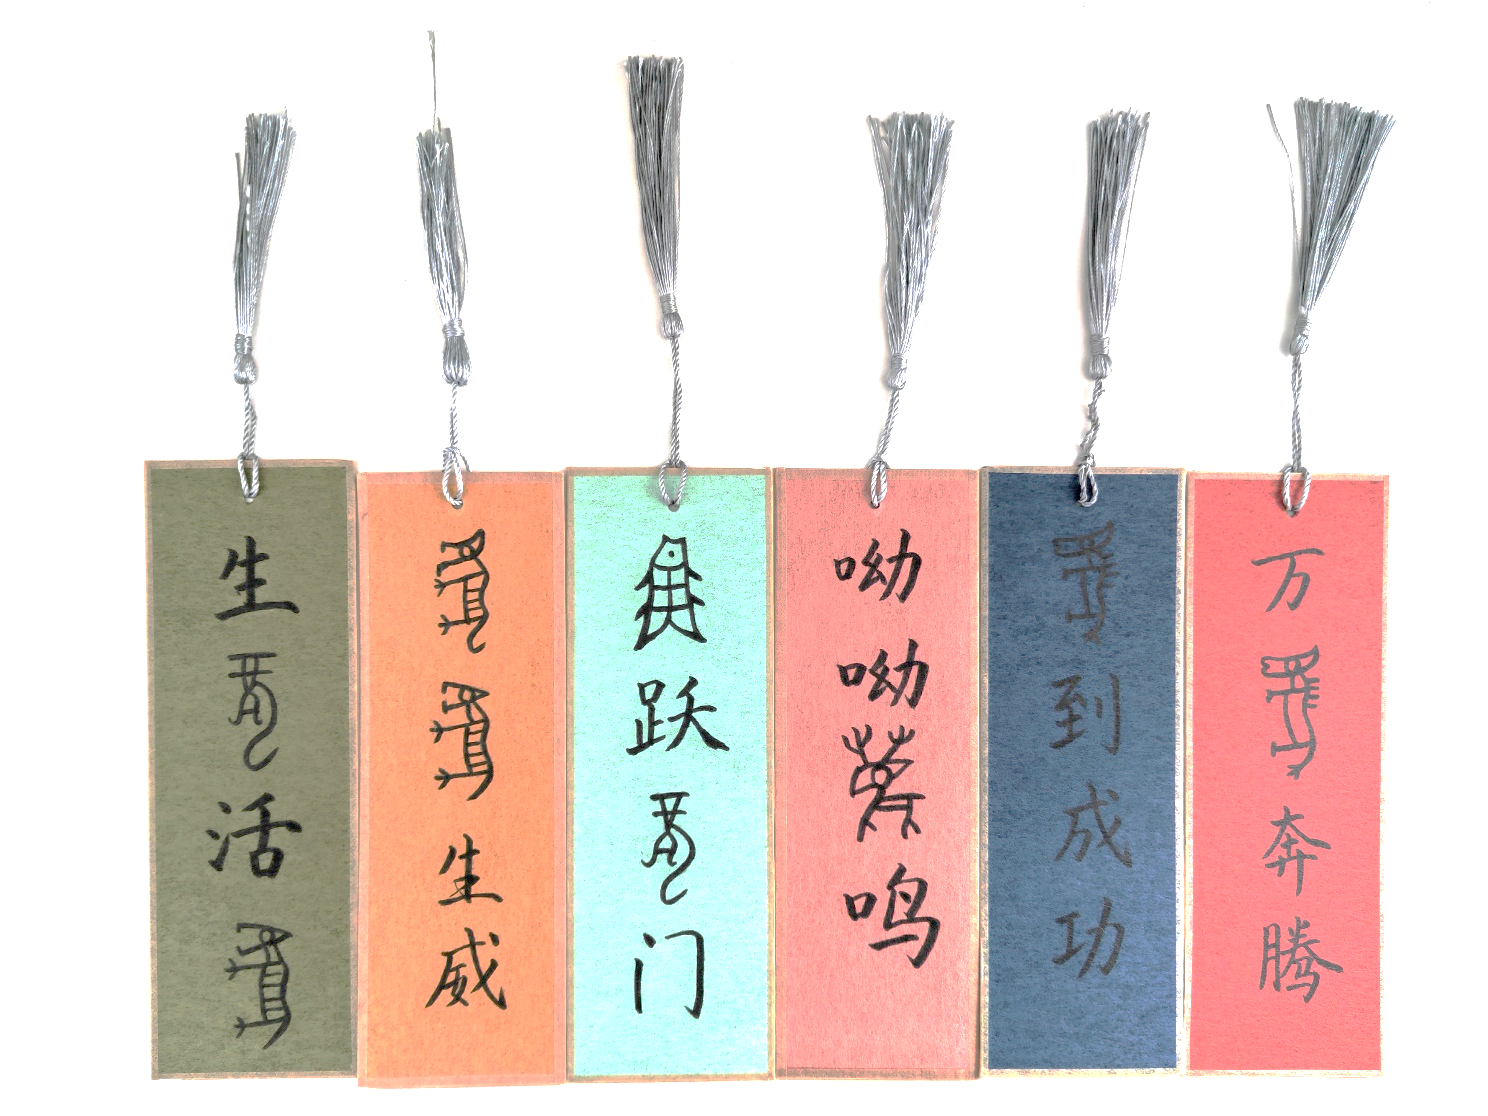 生龙活虎
虎虎生威
鱼跃龙门
呦呦鹿鸣
马到成功
万马奔腾